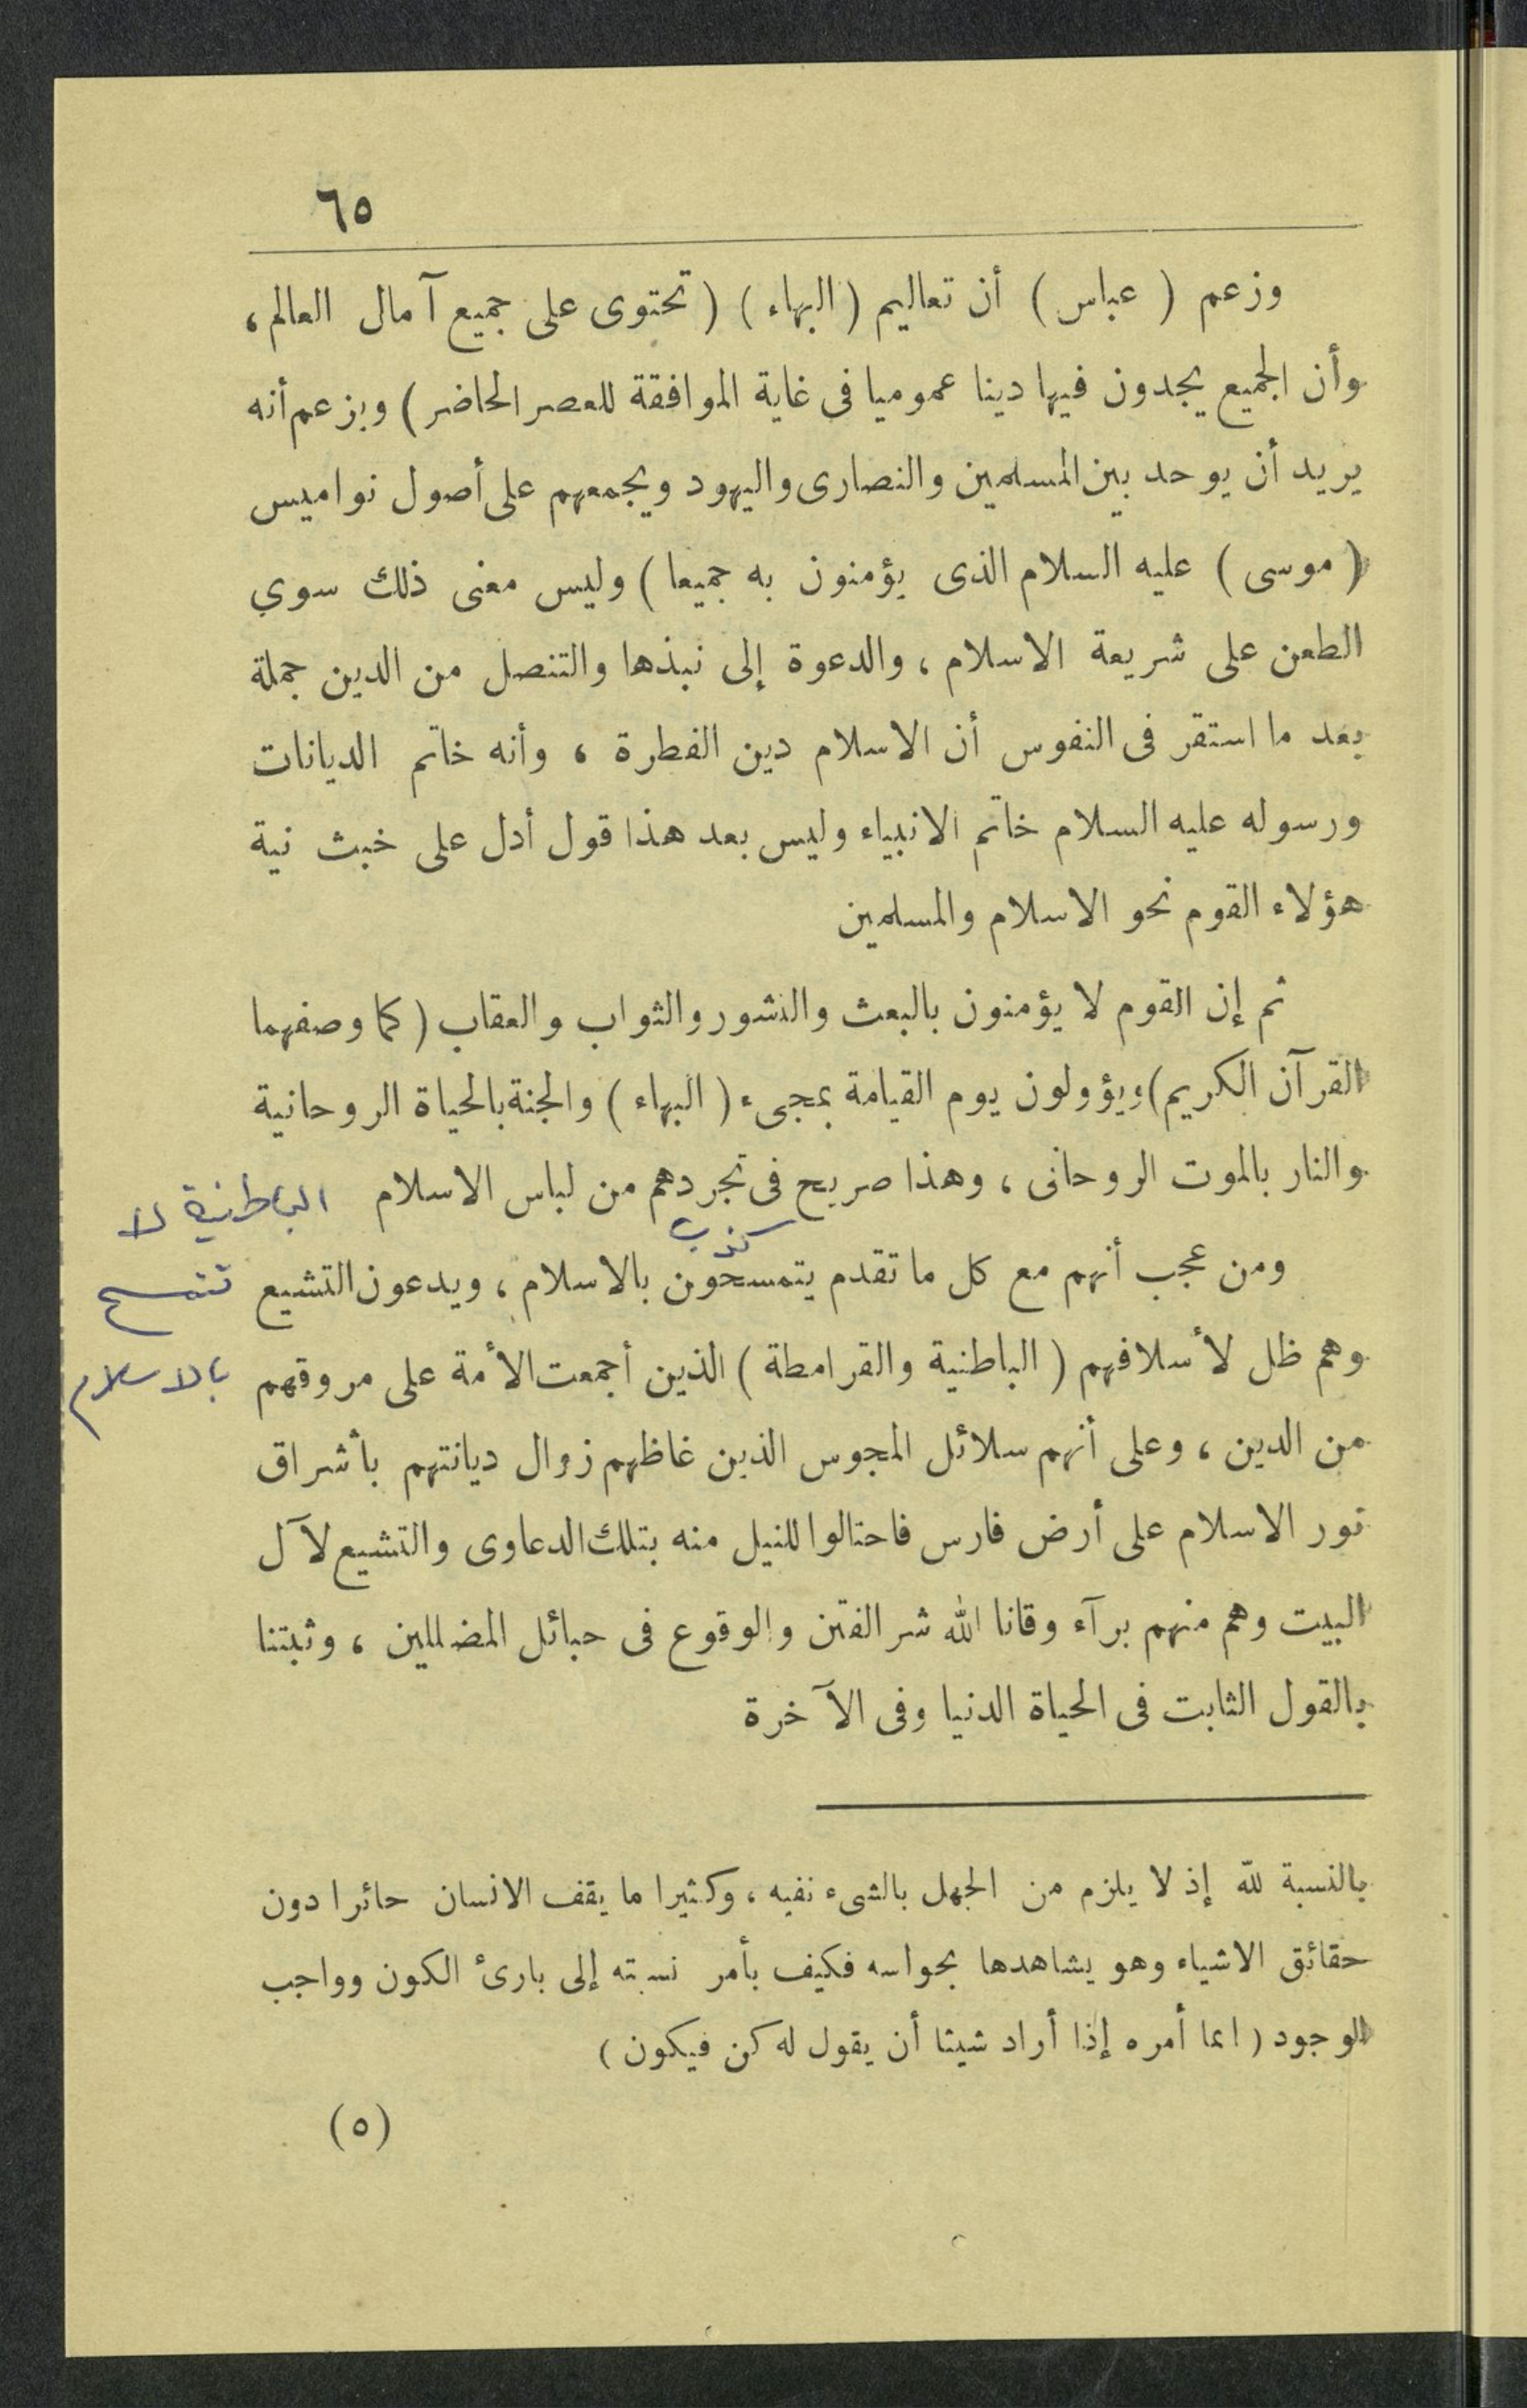 ٦٥
وزعم ( عباس ) أن تعاليم ( البهاء ) ( تحتوى على جميع آمال العالم ،
وأن الجميع يجدون فيها دينا عموميا فى غاية الموافقة للعصر الحاضر ) ويزعم أنه
يريد أن يوحد بين المسلمين والنصارى واليهود ويجمعهم على أصول نواميس
( موسى ) عليه السلام الذى يؤمنون به جميعا ) وليس معنى ذلك سوي
الطعن على شريعة الاسلام ، والدعوة إلى نبذها والتنصل من الدين جملة
بعد ما استقر فى النفوس أن الاسلام دين الفطرة ، وأنه خاتم الديانات
ورسوله عليه السلام خاتم الانبياء وليس بعد هذا قول أدل على خبث نية
هؤلاء القوم نحو الاسلام والمسلمين
ثم إن القوم لا يؤمنون بالبعث والنشور والثواب والعقاب ( كما وصفهما
القرآن الكريم ) ويؤولون يوم القيامة بمجىء ( البهاء ) والجنة بالحياة الروحانية
والنار بالموت الروحانى ، وهذا صريح فى تجردهم من لباس الاسلام
الباطنية لا
كذب
ومن عجب أنهم مع كل ما تقدم يتمسحون بالاسلام ، ويدعون التشيع
تتمسح
وهم ظل لأسلافهم ( الباطنية والقرامطة ) الذين أجمعت الأمة على مروقهم
بالاسلام
من الدين ، وعلى أنهم سلائل المجوس الذين غاظهم زوال ديانتهم بأشراق
نور الاسلام على أرض فارس فاحتالوا للنيل منه بتلك الدعاوى والتشيع لآل
البيت وهم منهم برآء وقانا الله شر الفتن والوقوع فى حبائل المضللين ، وثبتنا
بالقول الثابت فى الحياة الدنيا وفى الآخرة
بالنسبة لله إذ لا يلزم من الجهل بالشىء نفيه ، وكثيرا ما يقف الانسان حائرا دون
حقائق الاشياء وهو يشاهدها بحواسه فكيف بأمر نسبته إلى بارئ الكون وواجب
الوجود ( انما أمره إذا أراد شيئا أن يقول له كن فيكون )
(٥)